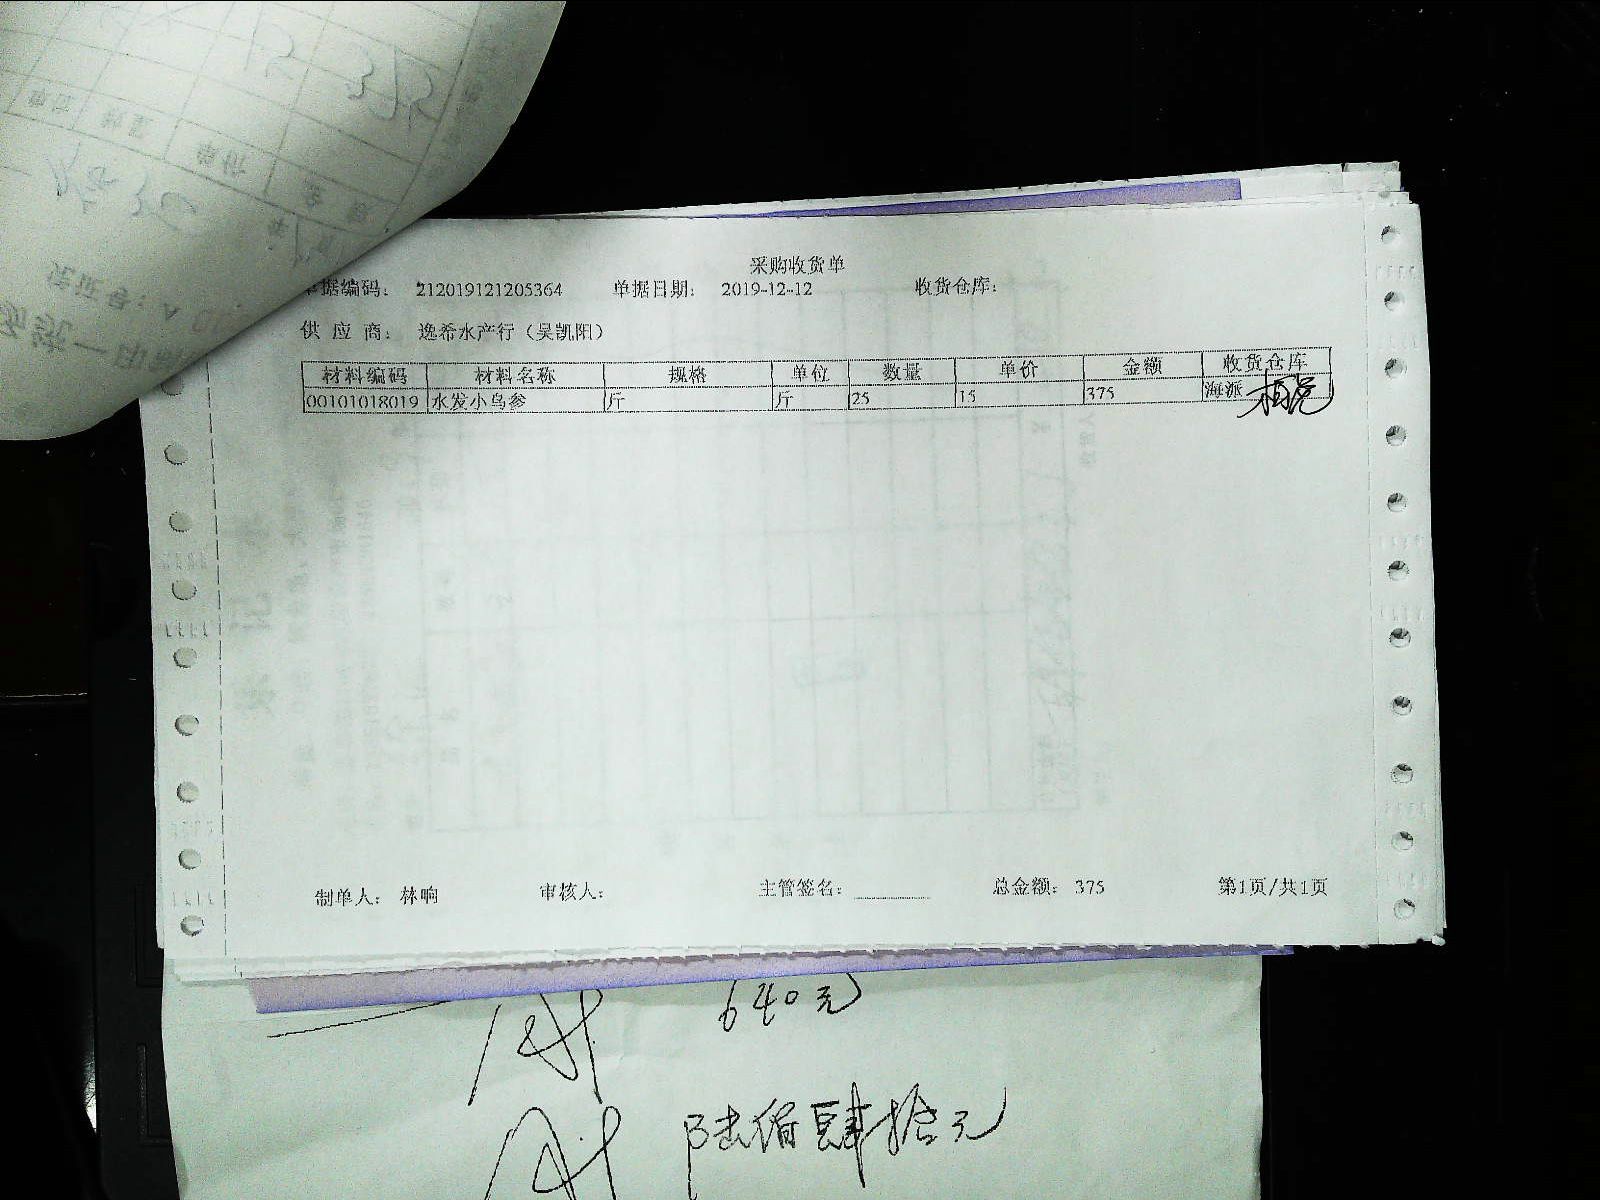 采购收货单
据编码: 212019121205364 单据日期: 2019-12-12 收货仓库:
供 应 商: 逸希水产行（吴凯阳）
材料编码 材料名称 规格 单位 数量 单价 金额 收货仓库
00101018019 水发小乌参 斤 斤 25 15 375 海派
制单人: 林响 审核人: 主管签名: 总金额: 375 第1页/共1页
640元
陆佰肆拾元